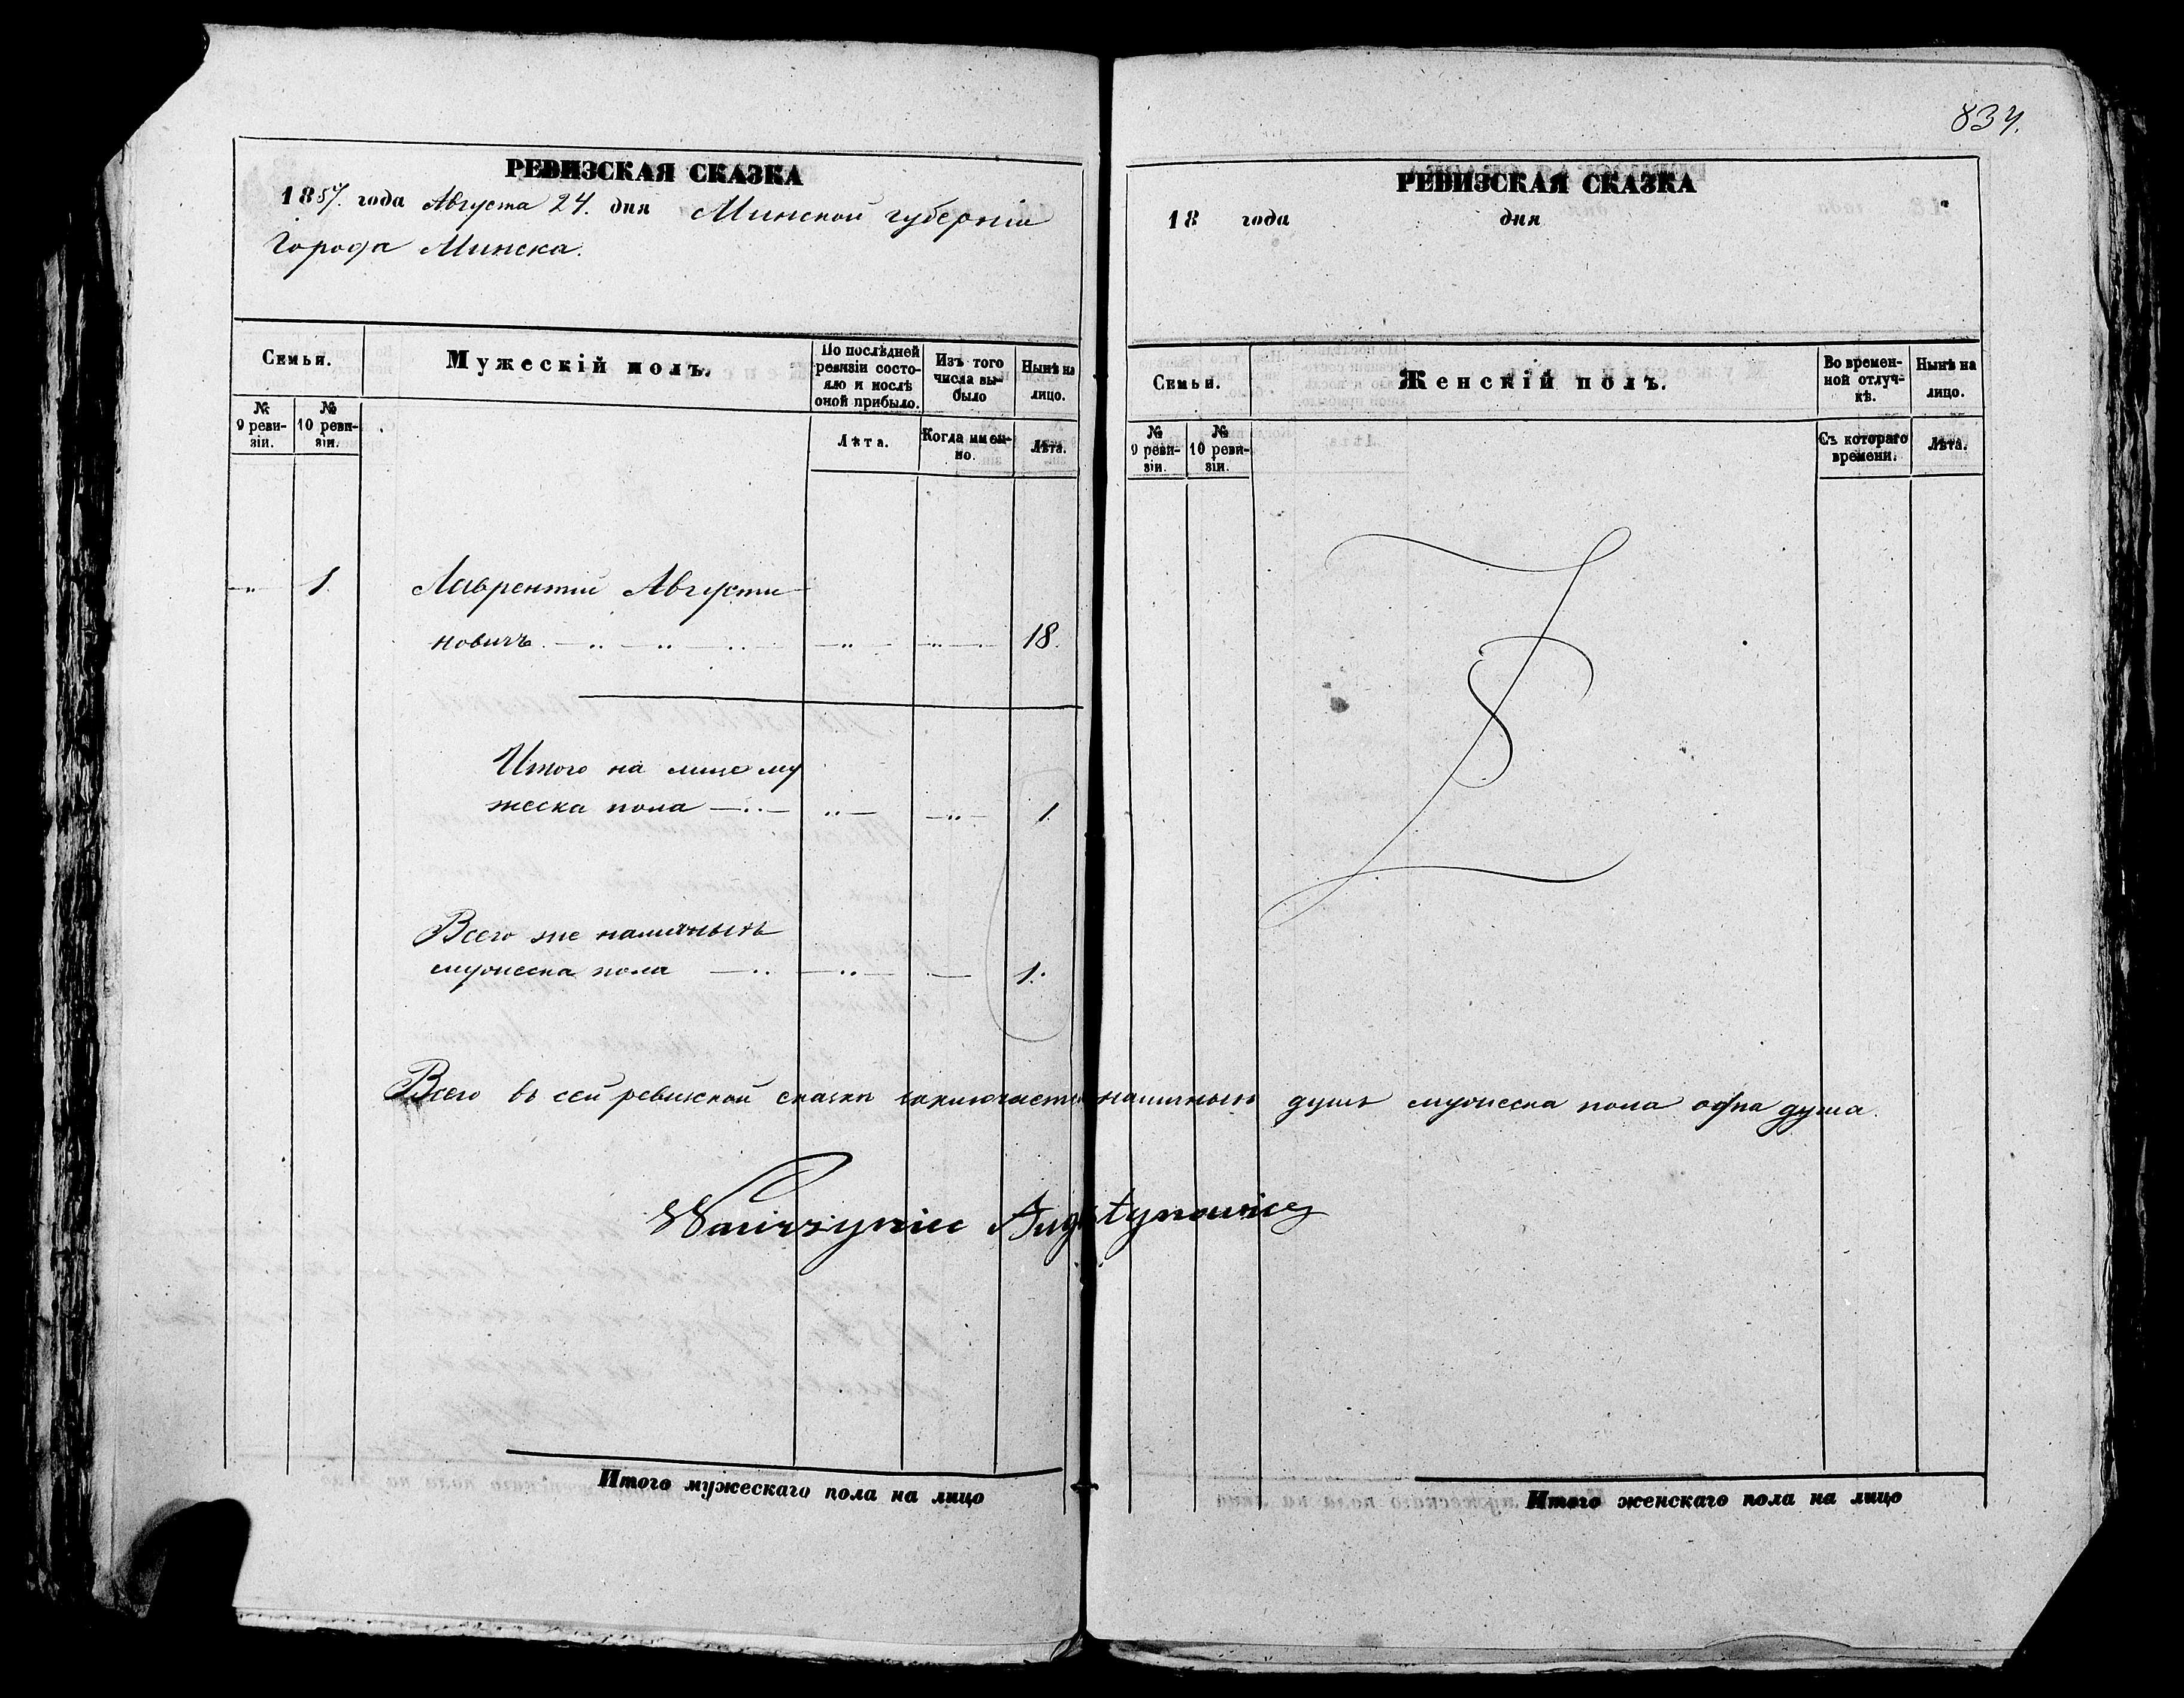 837.
РЕВИЗСКАЯ СКАЗКА
1857. года Августа 24. дня Минской губерніи
Города Минска.
Семьи.
Мужескій полъ.
По послѣдней ревизіи состояло и послѣ оной прибыло.
Изъ того числа выбыло
Нынѣ на лицо.
№ 9 ревизіи.
№ 10 ревизіи.
Лѣта.
Когда именно.
Лѣта.
1. Лаврентій Августи-
новичъ. 18.
Итого на лице му
жеска пола 1.
Всего же наличныхъ
мужеска пола 1.
Всего въ сей ревизской сказкѣ заключается наличныхъ душъ мужеска пола одна душа.
Wawrzyniec Augustynowicz
Итого мужескаго пола на лицо
РЕВИЗСКАЯ СКАЗКА
18 года дня
Семьи.
Женскій полъ.
Во временной отлучкѣ.
Нынѣ на лицо.
№ 9 ревизіи.
№ 10 ревизіи.
Съ котораго времени.
Лѣта.
Итого женскаго пола на лицо